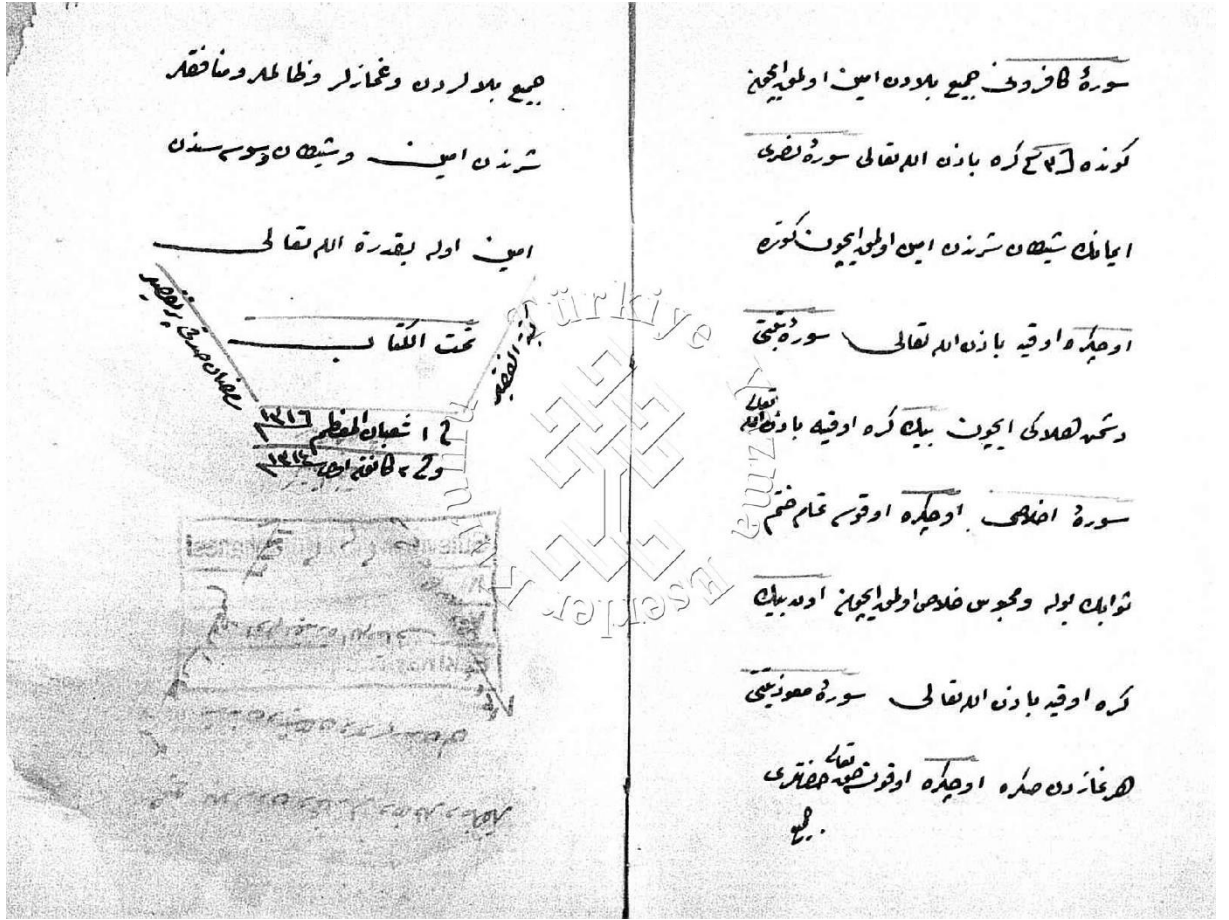 سورهٔ كافرونى جميع بلادن امين اولمق ايچون
كونده ٣ كره باذن الله تعالى سورهٔ نصرى
ايمانك شيطان شرندن امين اولمق ايچون كونده
اوچكره اوقيه باذن الله تعالى سورهٔ تبتى
دشمن هلاكى ايچون بيك كره اوقيه باذن الله تعالى
سورهٔ اخلاصى اوچكره اوقوسه تمام ختم
ثوابك بوله ومحبوس خلاص اولمق ايچون اون بيك
كره اوقيه باذن الله تعالى سورهٔ معوذتينى
هر نمازدن صكره اوچكره اوقوسه حق تعالى حضرتلرى
جميع
جميع بلالردن وغمازلر وظالملر ومنافقلر
شرندن امين وشيطان وسوسه سندن
امين اوله بقدرة الله تعالى
تمت الكتاب
كتبه الفقير
رمضان صدقى پرتقصير
شعبان المعظم ١٣١٦
كانون اول ١٣١٤
Türkiye Yazma Eserler Kurumu